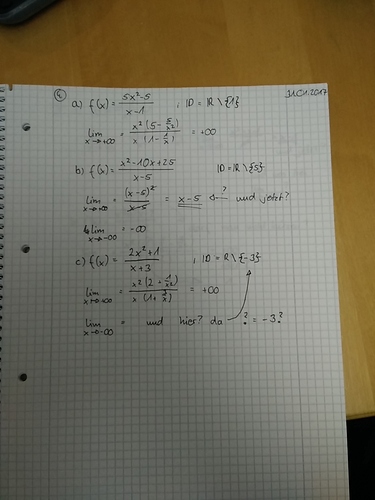 31.01.2017
4.
a) f(x) = (5x²-5)/(x-1) , ID = IR \ {1}
lim x→+∞ = x²(5 - 5/x²) / x(1 - 1/x) = +∞
b) f(x) = (x²-10x+25)/(x-5) ID = IR \ {5}
lim x→+∞ = (x-5)²/(x-5) = x-5 ← ? und jetzt?
lim x→-∞ = -∞
c) f(x) = (2x²+1)/(x+3) , ID = R \ {-3}
lim x→+∞ = x²(2 + 1/x²) / x(1 + 3/x) = +∞
lim x→-∞ = und hier? da ? = -3?